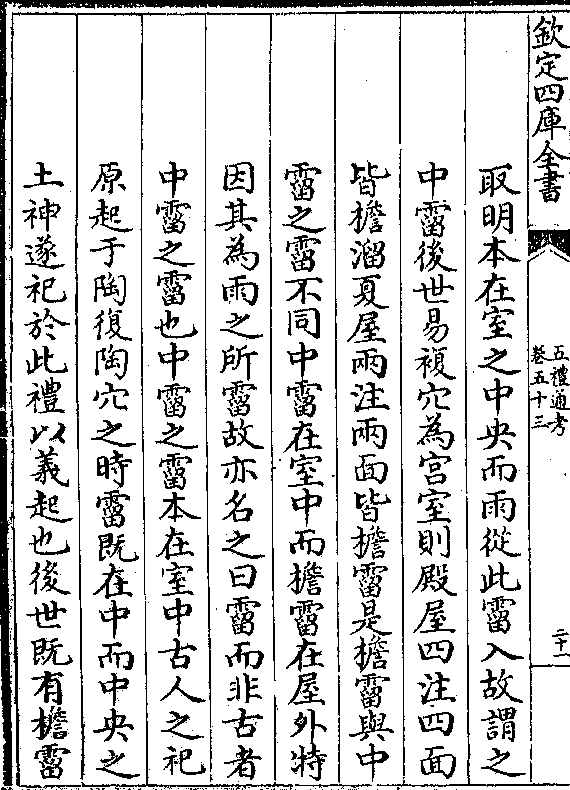 欽定四庫全書
五禮通考
卷五十三
二十一
取明本在室之中央而雨從此霤入故謂之
中霤後世易複穴為宫室則殿屋四注四面
皆檐溜夏屋兩注兩面皆檐霤是檐霤與中
霤之霤不同中霤在室中而檐霤在屋外特
因其為雨之所霤故亦名之曰霤而非古者
中霤之霤也中霤之霤本在室中古人之祀
原起于陶復陶穴之時霤既在中而中央之
土神遂祀於此禮以義起也後世既有檐霤